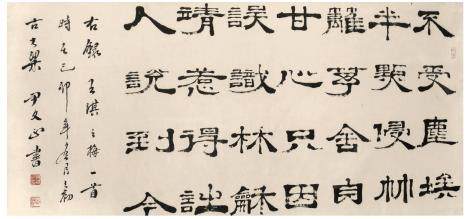 不受塵埃
半點侵竹
離茅舍自
甘心只因
誤識林龢
靖惹得詩
人說到今
右錄王淇之梅一首
時在己卯年月之初
古翼尹文正書